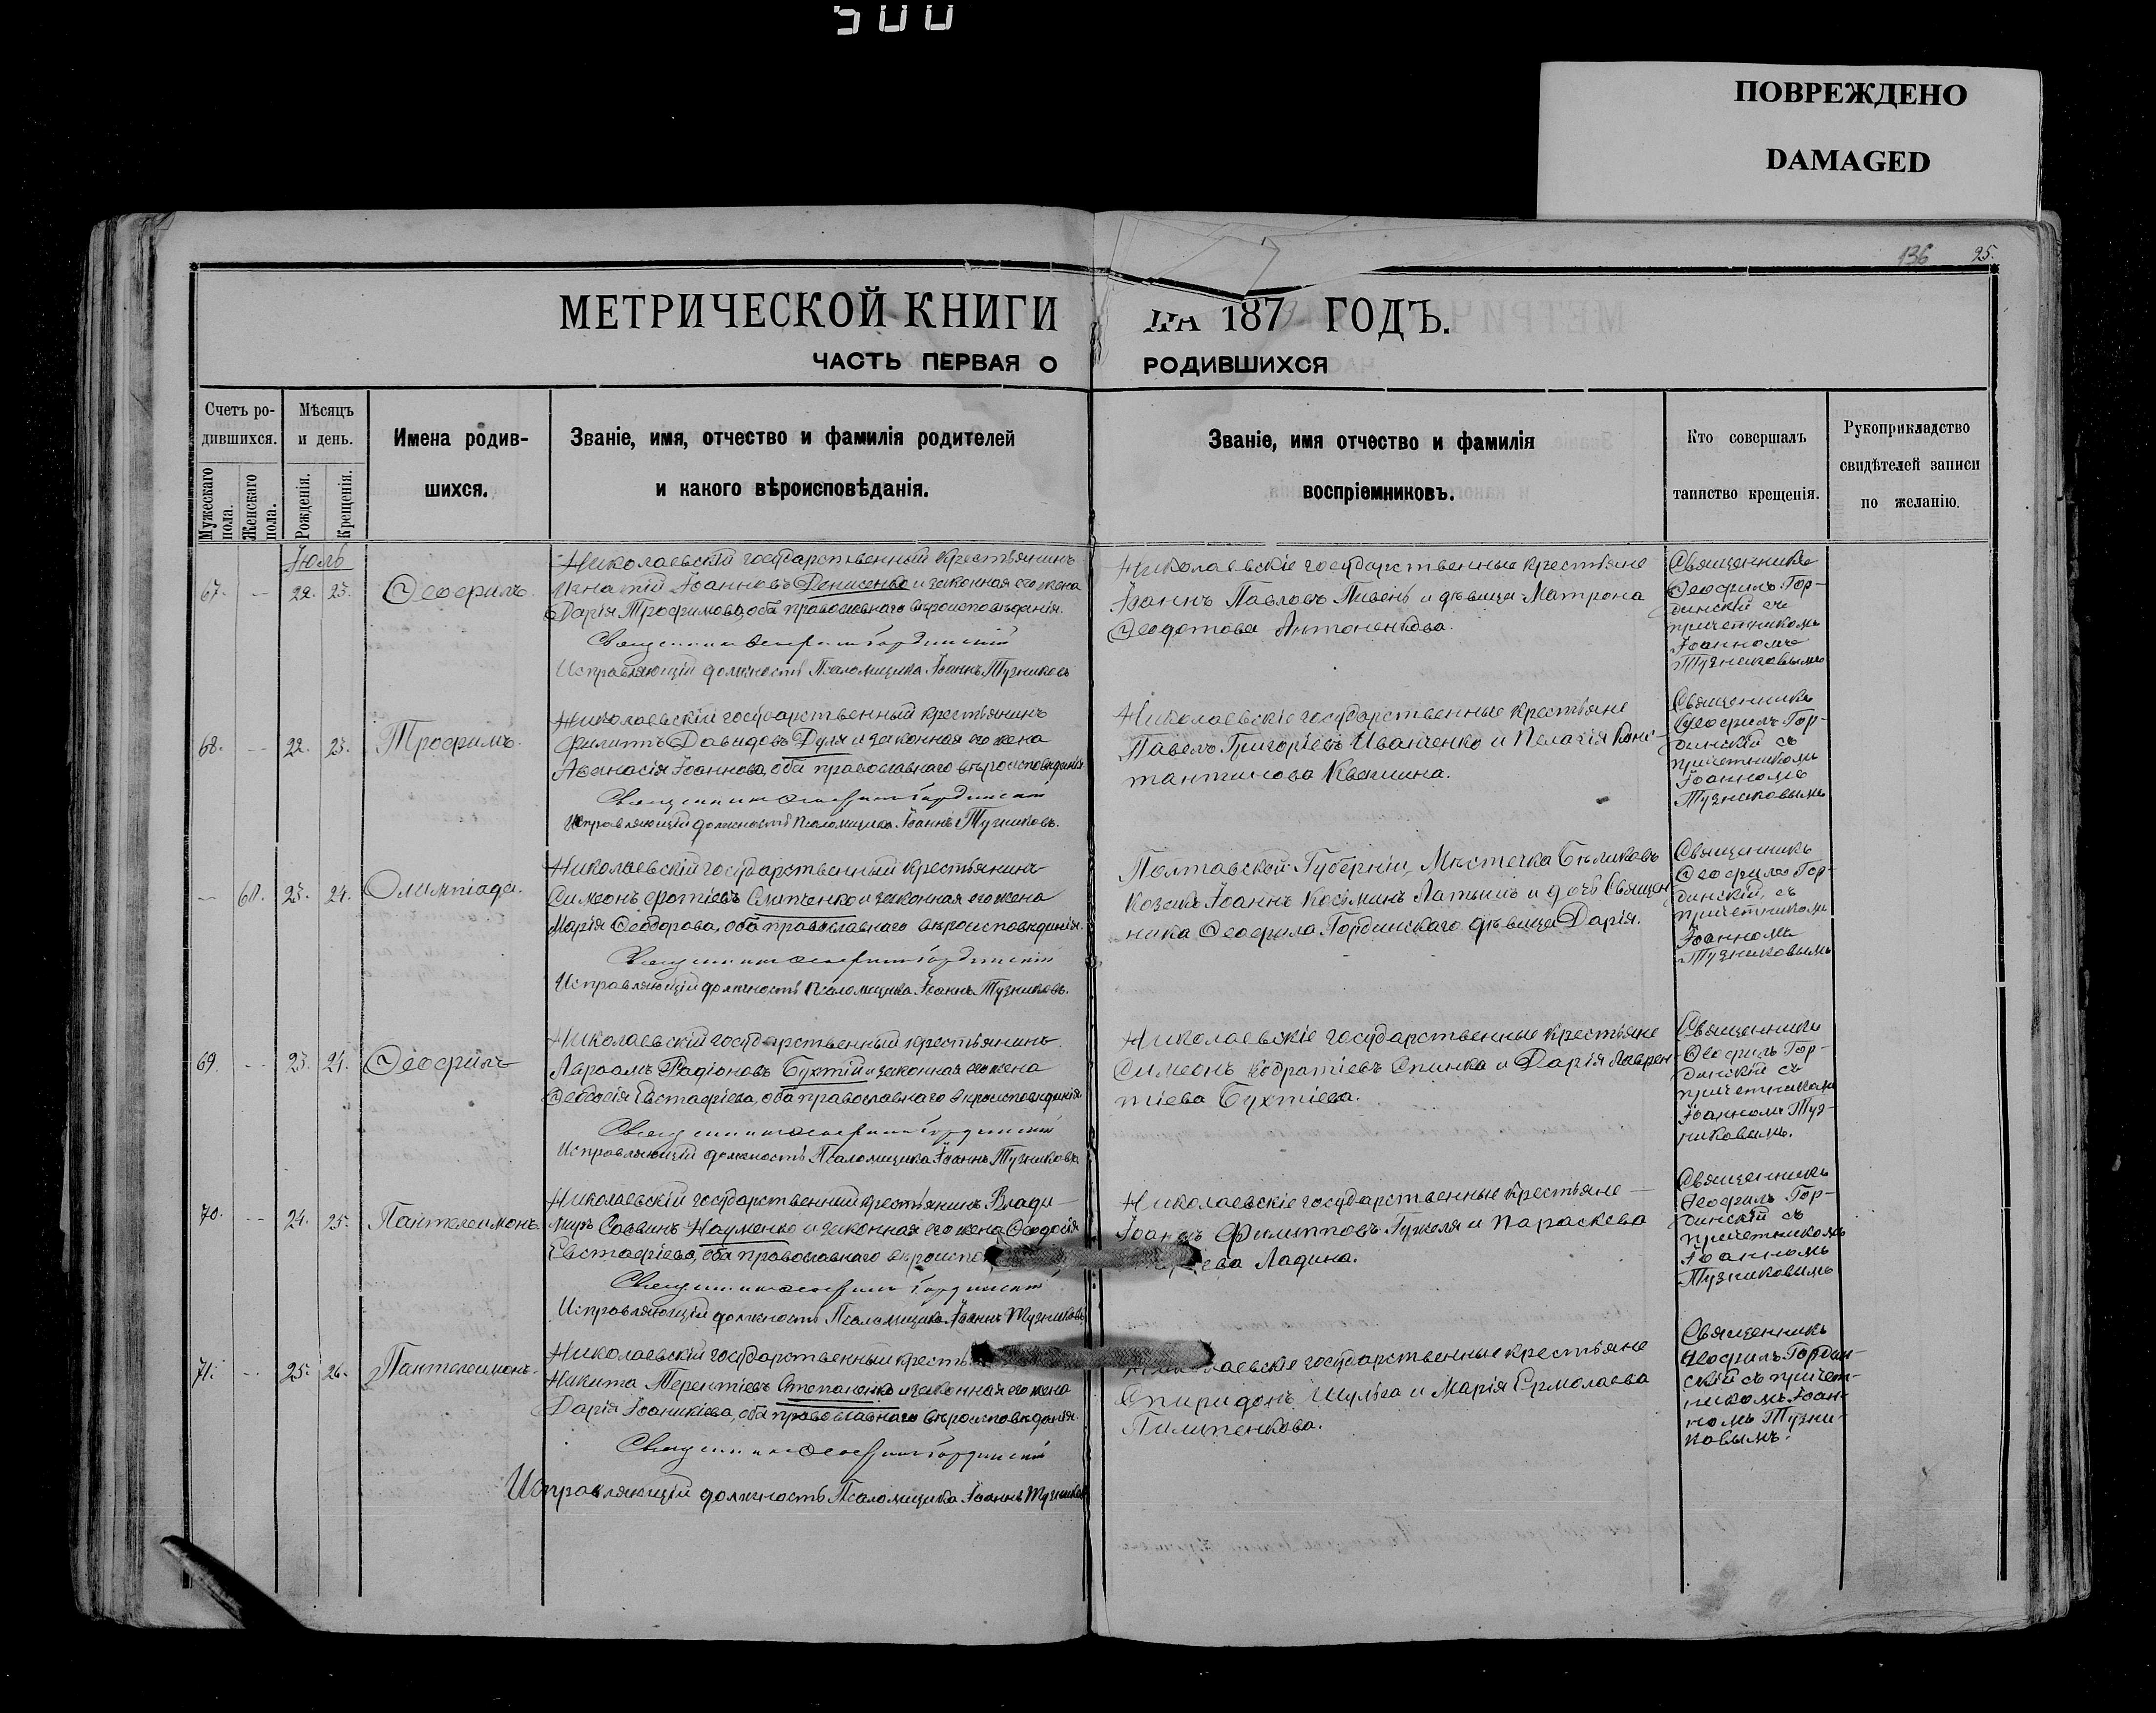 500
ПОВРЕЖДЕНО
DAMAGED
136 95.
МЕТРИЧЕСКОЙ КНИГИ НА 187 ГОДЪ.
ЧАСТЬ ПЕРВАЯ О РОДИВШИХСЯ
Счетъ ро-
дившихся.
Мужескаго пола.
Женскаго пола.
Мѣсяцъ
и день.
Рожденія.
Крещенія.
Имена родив-
шихся.
Званіе, имя, отчество и фамилія родителей
и какого вѣроисповѣданія.
Званіе, имя отчество и фамилія
воспріемниковъ.
Кто совершалъ
таинство крещенія.
Рукоприкладство
свидѣтелей записи
по желанію.
Іюль
67. — 22. 23. Ѳеофилъ.
Николаевскій государственный крестьянинъ
Игнатій Іоанновъ Денисенко и законная его жена
Дарія Трофимова, оба православнаго вѣроисповѣданія.
Священникъ Ѳеофилъ Гординскій
Исправляющій должность Псаломщика Іоаннъ Тузниковъ
Николаевскіе государственные крестьяне
Іоаннъ Павловъ Пивень и дѣвица Матрона
Ѳеодотова Антоненкова.
Священникъ
Ѳеофилъ Гор-
динскій съ
причетникомъ
Іоанномъ
Тузниковымъ
68. — 22. 23. Трофимъ.
Николаевскій государственный крестьянинъ
Филиппъ Давидовъ Дуля и законная его жена
Аѳанасія Іоаннова, оба православнаго вѣроисповѣданія
Священникъ Ѳеофилъ Гординскій
Исправляющій должность Псаломщика Іоаннъ Тузниковъ.
Николаевскіе государственные крестьяне
Павелъ Григоріевъ Иванченко и Пелагія Конс-
тантинова Квашина.
Священникъ
Ѳеофилъ Гор-
динскій съ
причетникомъ
Іоанномъ
Тузниковымъ
— 68. 23. 24. Олимпіада.
Николаевскій государственный крестьянинъ
Симеонъ Фотіевъ и законная его жена
Марія Ѳеодорова, оба православнаго вѣроисповѣданія.
Священникъ Ѳеофилъ Гординскій
Исправляющій должность Псаломщика Іоаннъ Тузниковъ.
Полтавской Губерніи, Мѣстечка Бѣликовъ
Козакъ Іоаннъ Косминъ Латышъ и дочь Священ
ника Ѳеофила Гординскаго дѣвица Дарія.
Священникъ
Ѳеофилъ Гор-
динскій, съ
причетникомъ
Іоанномъ
Тузниковымъ
69. — 23. 24. Ѳеофилъ
Николаевскій государственный крестьянинъ
Авраамъ Радіоновъ Бухтій и законная его жена
Ѳеодосія Евстафіева, оба православнаго вѣроисповѣданія
Священникъ Ѳеофилъ Гординскій
Исправляющій должность Псаломщика Іоаннъ Тузниковъ
Николаевскіе государственные крестьяне
Симеонъ Кодратіевъ Спинка и Дарія Лаврен-
тіева Бухтіева.
Священникъ
Ѳеофилъ Гор-
динскій съ
причетникомъ
Іоанномъ Туз-
никовымъ.
70. — 24. 25. Пантелеимонъ.
Николаевскій государственный крестьянинъ Влади-
миръ Саввинъ Науменко и законная его жена Ѳеодосія
Евстафіева, оба православнаго вѣроиспо
Священникъ Ѳеофилъ Гординскій
Исправляющій должность Псаломщика Іоаннъ Тузниковъ
Николаевскіе государственные крестьяне
Іоаннъ Филипповъ и Параскева
ева Ладина.
Священникъ
Ѳеофилъ Гор-
динскій съ
причетникомъ
Іоанномъ
Тузниковымъ
71. — 25. 26. Пантелеимонъ.
Николаевскій государственный кресть
Никита Терентіевъ Степаненко и законная его жена
Дарія Іоаникіева, оба православнаго вѣроисповѣданія.
Священникъ Ѳеофилъ Гординскій
Исправляющій должность Псаломщика Іоаннъ Тузниковъ
Николаевскіе государственные крестьяне
Спиридонъ Шульга и Марія Ермолаева
Пилипенкова.
Священникъ
Ѳеофилъ Гордин-
скій съ причет-
никомъ Іоан-
номъ Тузни-
ковымъ.